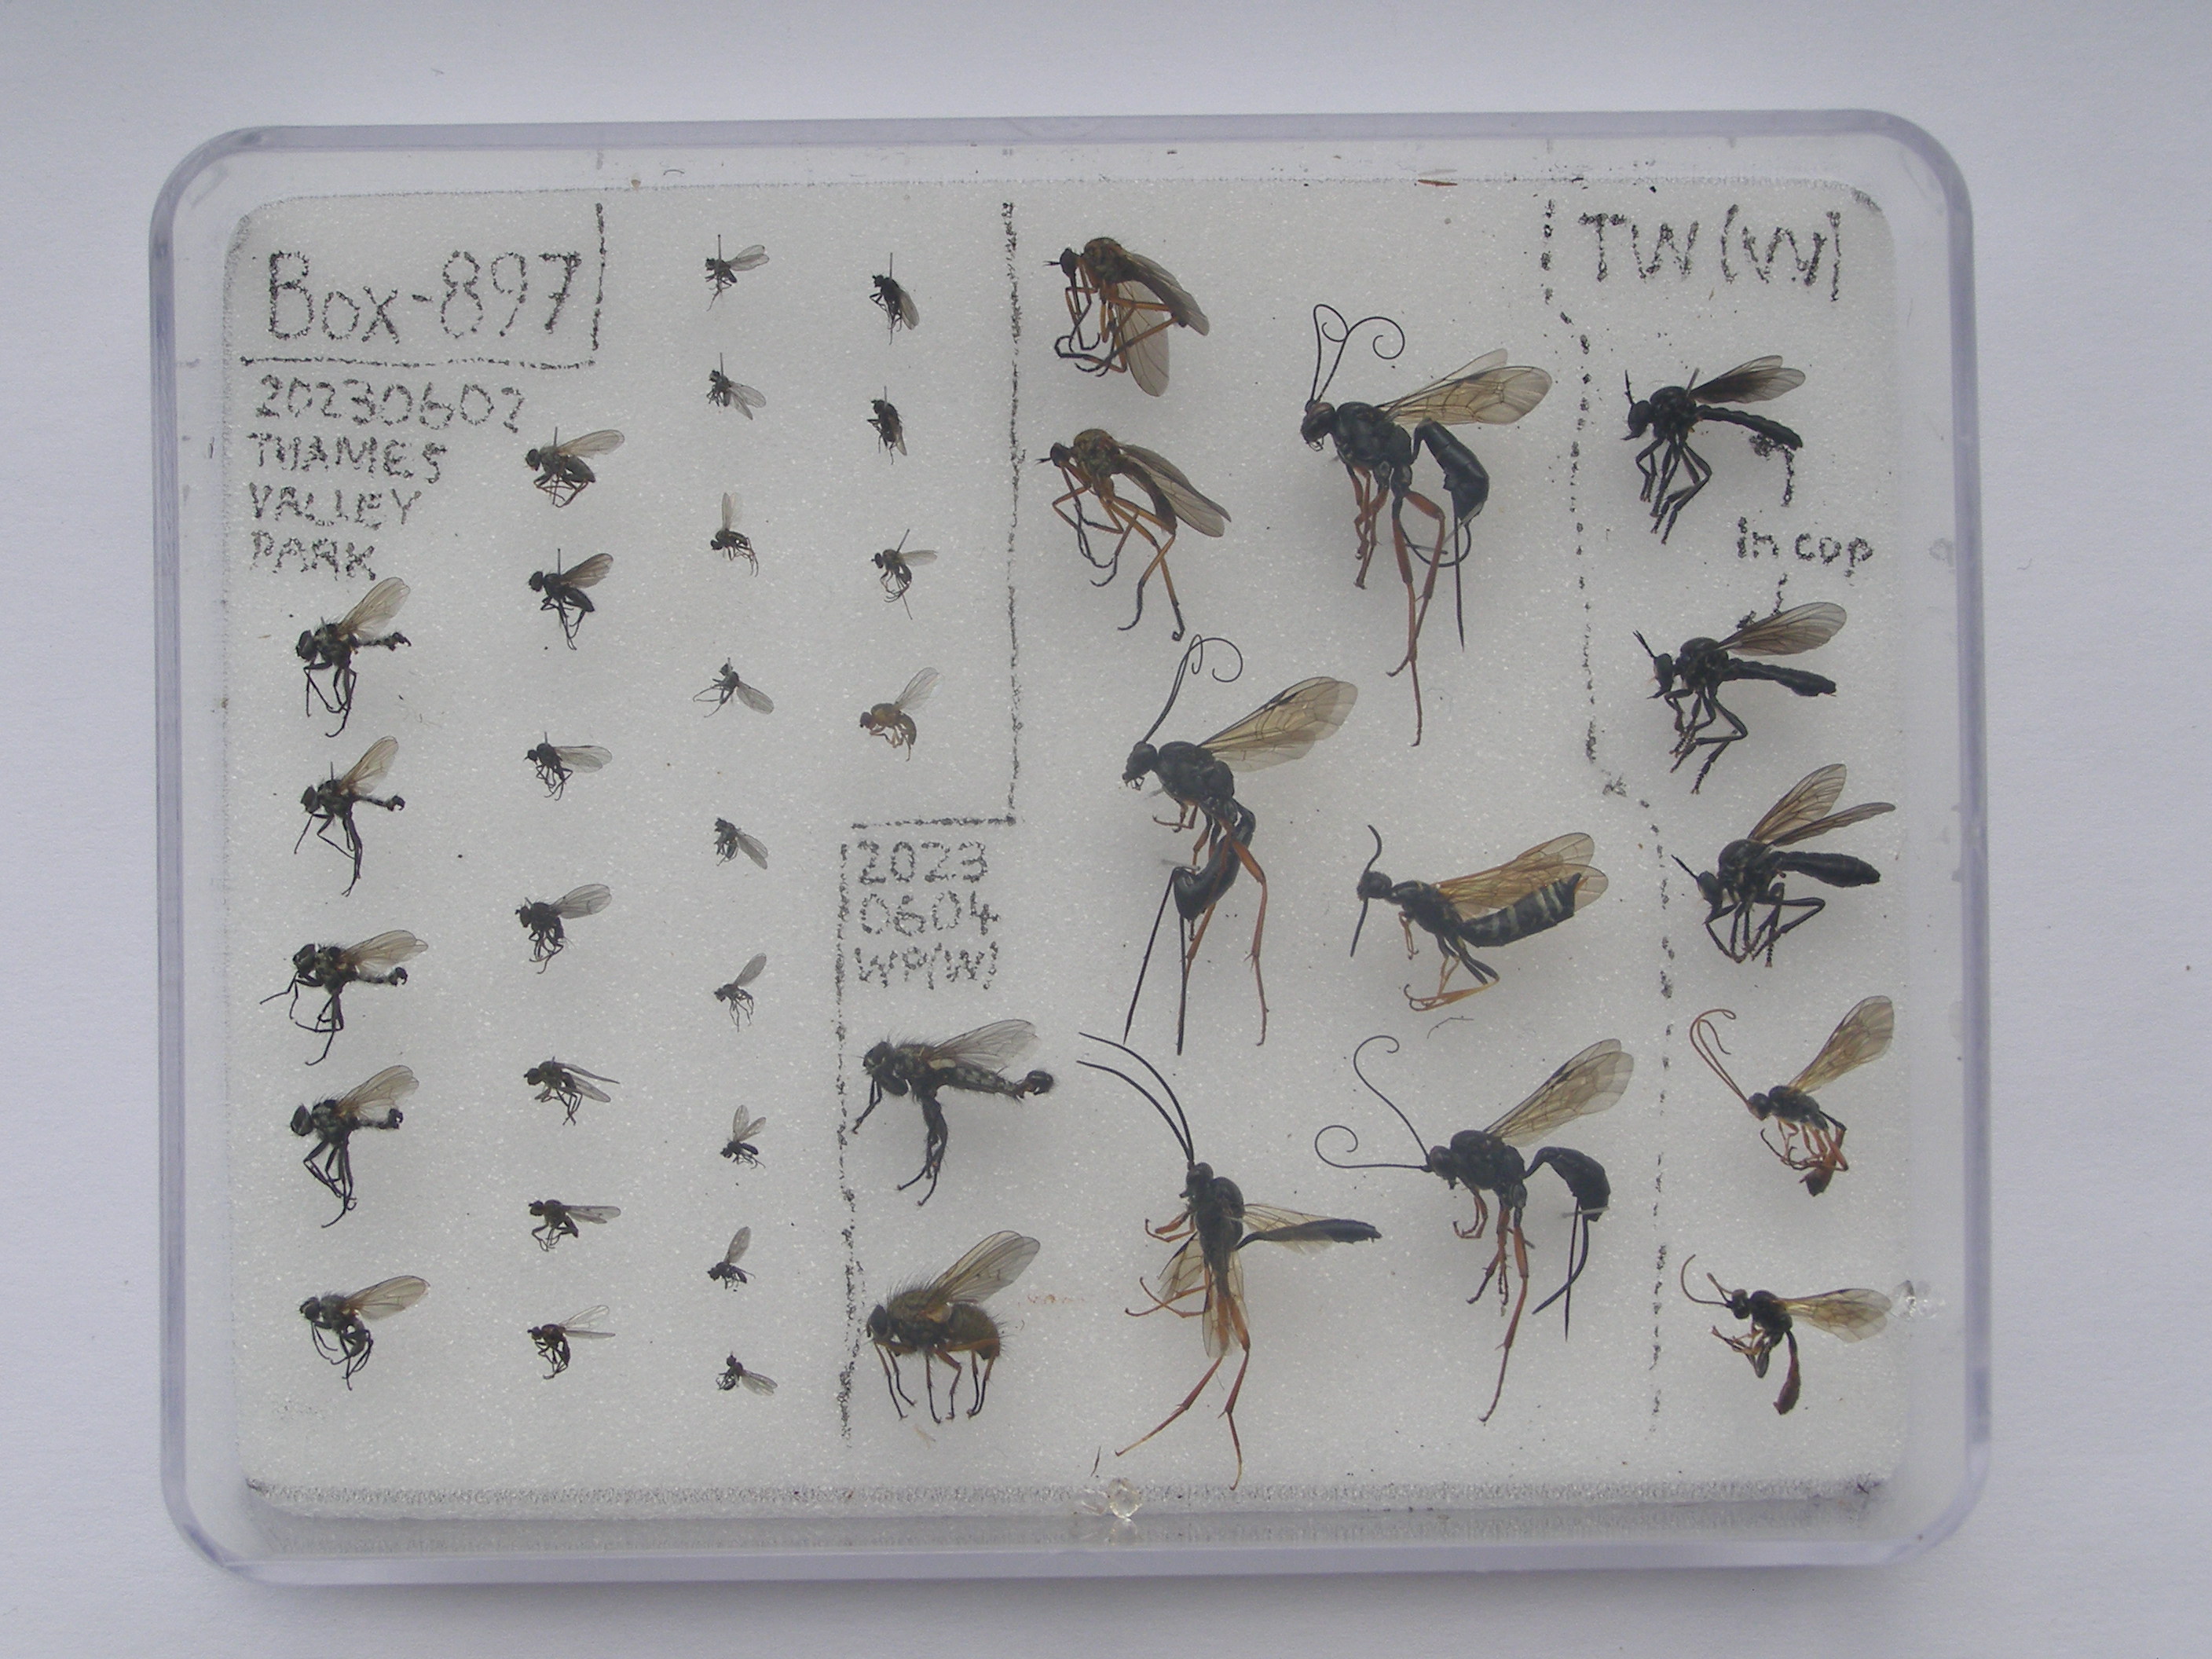 Box-897
20230602
THAMES
VALLEY
PARK
2023
0604
WP(W)
TW (W)
in cop